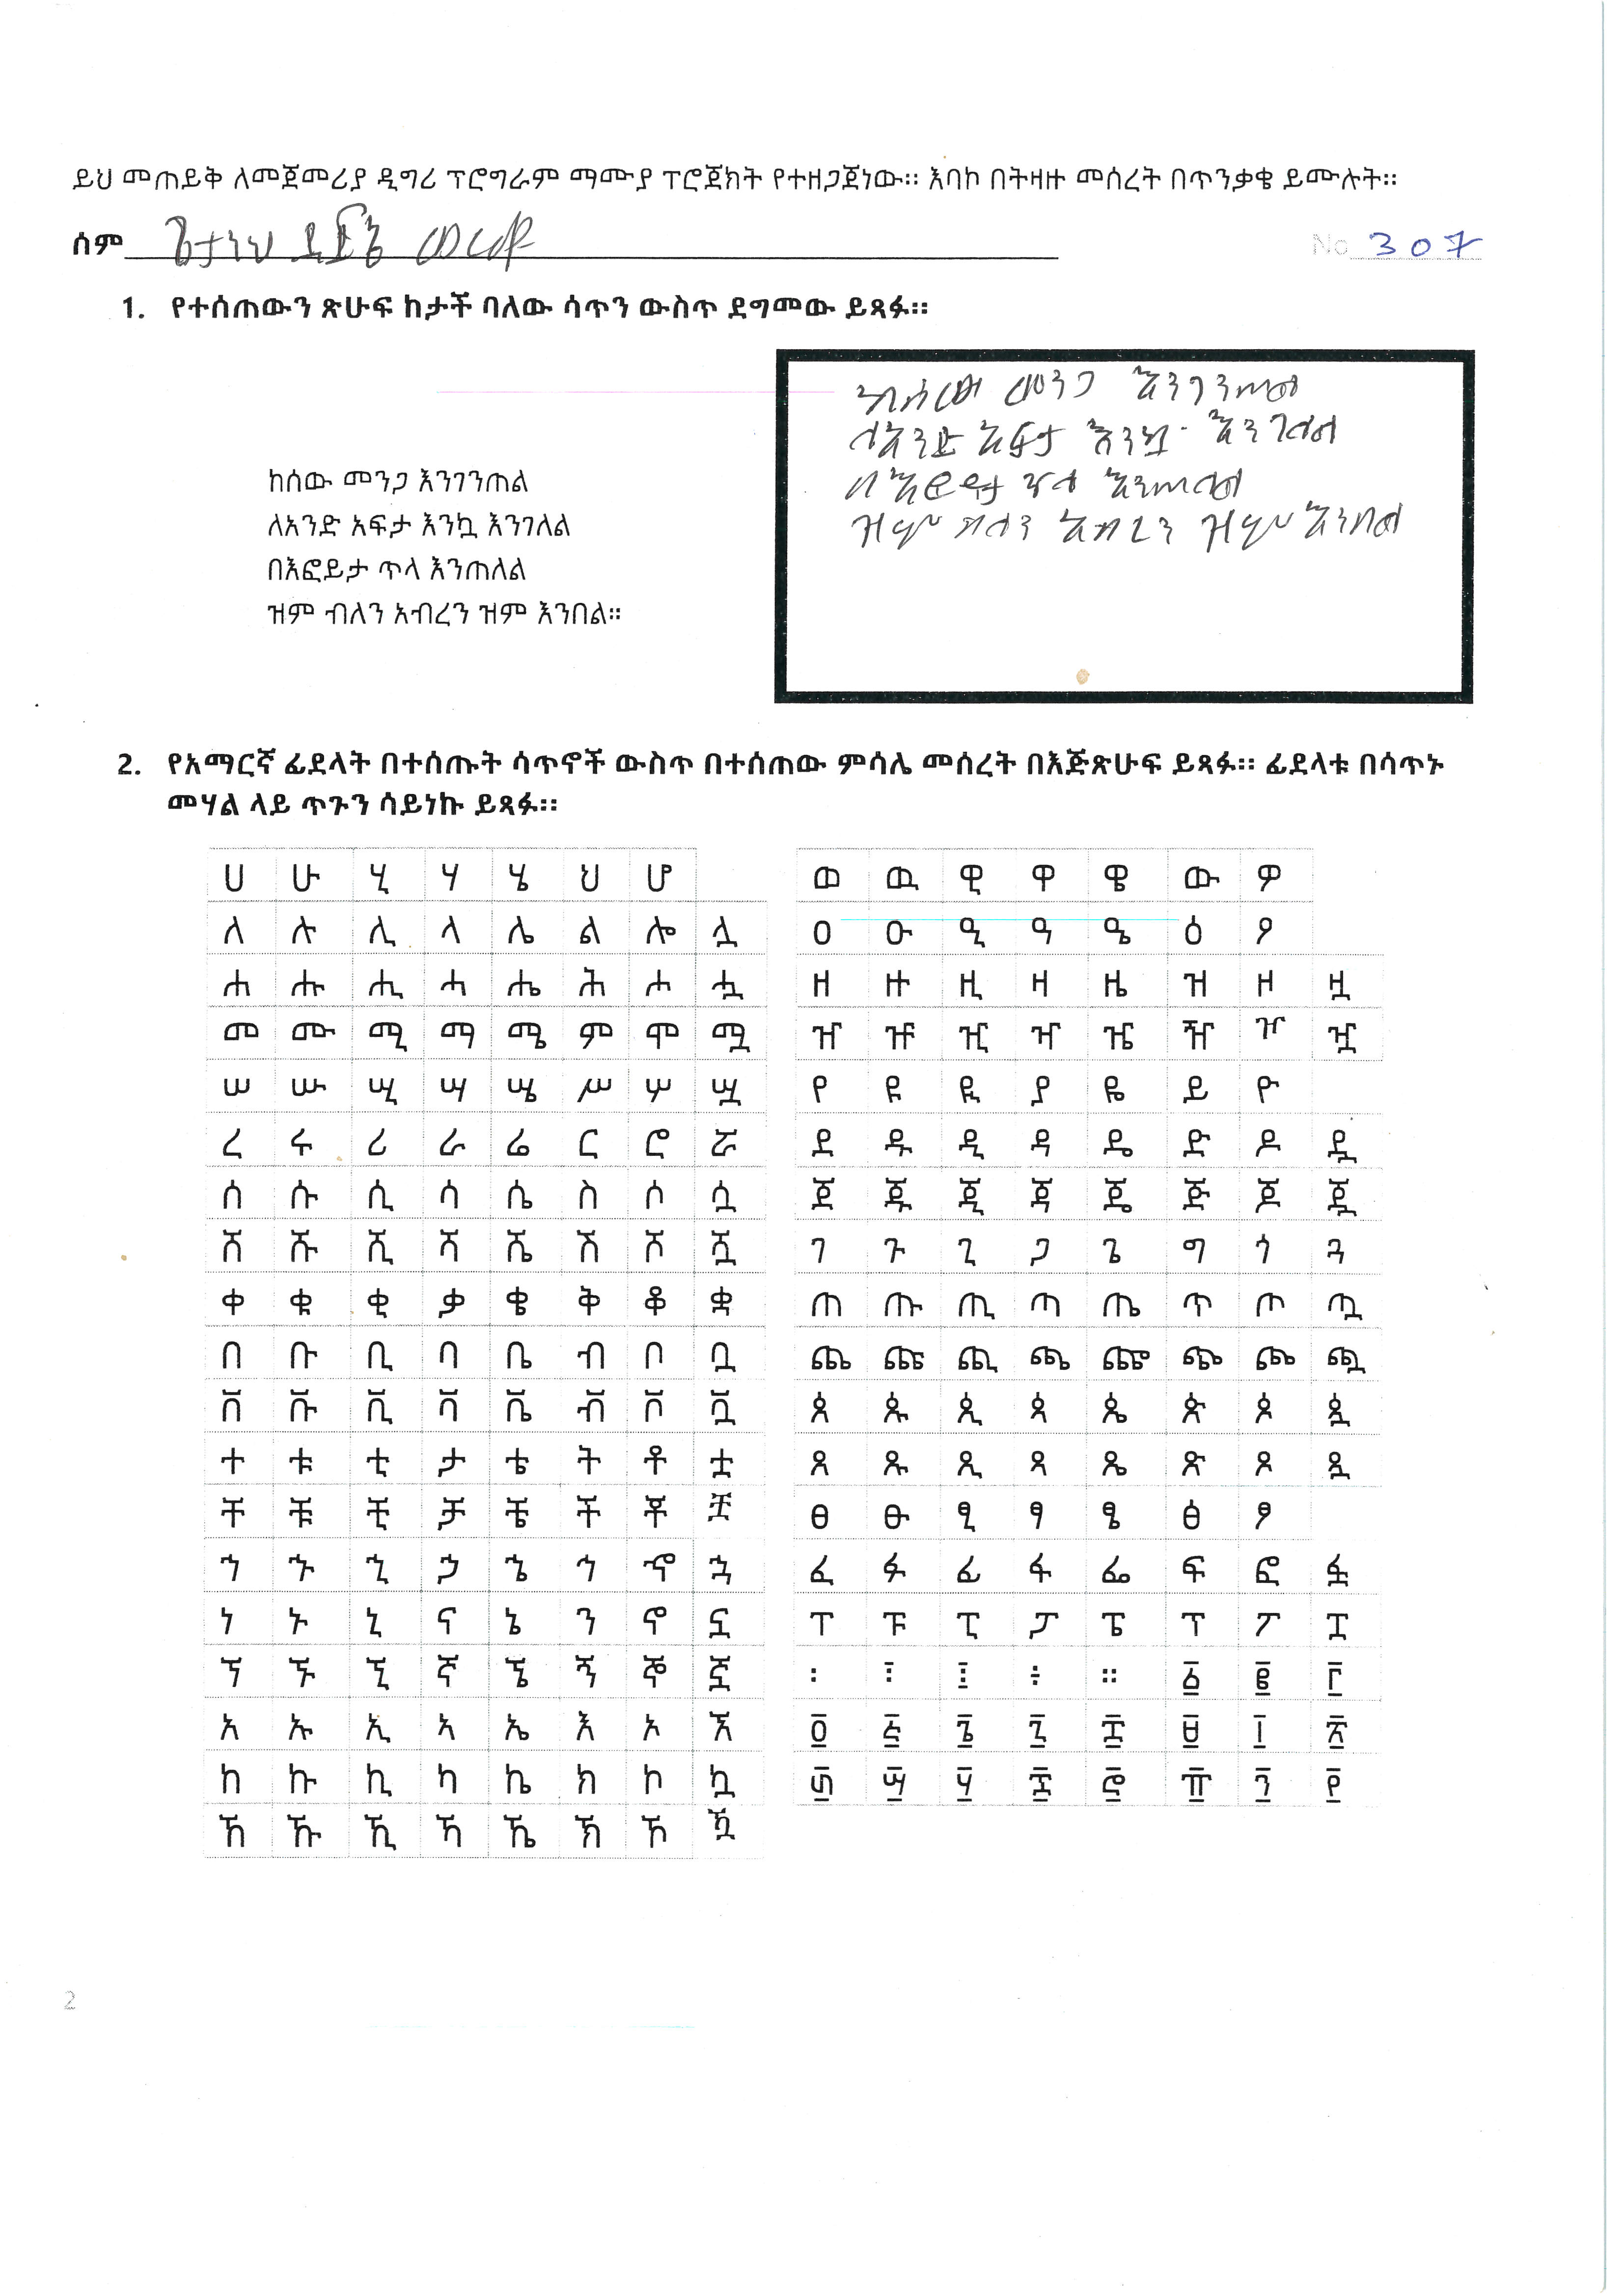 ይህ መጠይቅ ለመጀመሪያ ዲግሪ ፕሮግራም ማሙያ ፕሮጀክት የተዘጋጀነው። እባኮ በትዛዙ መሰረት በጥንቃቄ ይሙሉት።
ስም ጌታነህ ደጀኔ ወርቁ No 307
1. የተሰጠውን ጽሁፍ ከታች ባለው ሳጥን ውስጥ ደግመው ይጻፉ።
ከሰው መንጋ እንገንጠል
ለአንድ አፍታ እንኳ እንገለል
በእፎይታ ጥላ እንጠለል
ዝም ብለን አብረን ዝም እንበል።
ከሰው መንጋ እንገንጠል
ለአንድ አፍታ እንኳ እንገለል
በእፎይታ ጥላ እንጠለል
ዝም ብለን አብረን ዝም እንበል
2. የአማርኛ ፊደላት በተሰጡት ሳጥኖች ውስጥ በተሰጠው ምሳሌ መሰረት በእጅጽሁፍ ይጻፉ። ፊደላቱ በሳጥኑ
መሃል ላይ ጥጉን ሳይነኩ ይጻፉ።
ሀ ሁ ሂ ሃ ሄ ህ ሆ
ለ ሉ ሊ ላ ሌ ል ሎ ሏ
ሐ ሑ ሒ ሓ ሔ ሕ ሖ ሗ
መ ሙ ሚ ማ ሜ ም ሞ ሟ
ሠ ሡ ሢ ሣ ሤ ሥ ሦ ሧ
ረ ሩ ሪ ራ ሬ ር ሮ ሯ
ሰ ሱ ሲ ሳ ሴ ስ ሶ ሷ
ሸ ሹ ሺ ሻ ሼ ሽ ሾ ሿ
ቀ ቁ ቂ ቃ ቄ ቅ ቆ ቋ
በ ቡ ቢ ባ ቤ ብ ቦ ቧ
ቨ ቩ ቪ ቫ ቬ ቭ ቮ ቯ
ተ ቱ ቲ ታ ቴ ት ቶ ቷ
ቸ ቹ ቺ ቻ ቼ ች ቾ ቿ
ኀ ኁ ኂ ኃ ኄ ኅ ኆ ኋ
ነ ኑ ኒ ና ኔ ን ኖ ኗ
ኘ ኙ ኚ ኛ ኜ ኝ ኞ ኟ
አ ኡ ኢ ኣ ኤ እ ኦ ኧ
ከ ኩ ኪ ካ ኬ ክ ኮ ኳ
ኸ ኹ ኺ ኻ ኼ ኽ ኾ ዃ
ወ ዉ ዊ ዋ ዌ ው ዎ
ዐ ዑ ዒ ዓ ዔ ዕ ዖ
ዘ ዙ ዚ ዛ ዜ ዝ ዞ ዟ
ዠ ዡ ዢ ዣ ዤ ዥ ዦ ዧ
የ ዩ ዪ ያ ዬ ይ ዮ
ደ ዱ ዲ ዳ ዴ ድ ዶ ዷ
ጀ ጁ ጂ ጃ ጄ ጅ ጆ ጇ
ገ ጉ ጊ ጋ ጌ ግ ጎ ጓ
ጠ ጡ ጢ ጣ ጤ ጥ ጦ ጧ
ጨ ጩ ጪ ጫ ጬ ጭ ጮ ጯ
ጰ ጱ ጲ ጳ ጴ ጵ ጶ ጷ
ጸ ጹ ጺ ጻ ጼ ጽ ጾ ጿ
ፀ ፁ ፂ ፃ ፄ ፅ ፆ
ፈ ፉ ፊ ፋ ፌ ፍ ፎ ፏ
ፐ ፑ ፒ ፓ ፔ ፕ ፖ ፗ
፡ ፣ ፤ ÷ ። ፩ ፪ ፫
፬ ፭ ፮ ፯ ፰ ፱ ፲ ፳
፴ ፵ ፶ ፷ ፸ ፹ ፺ ፻
2